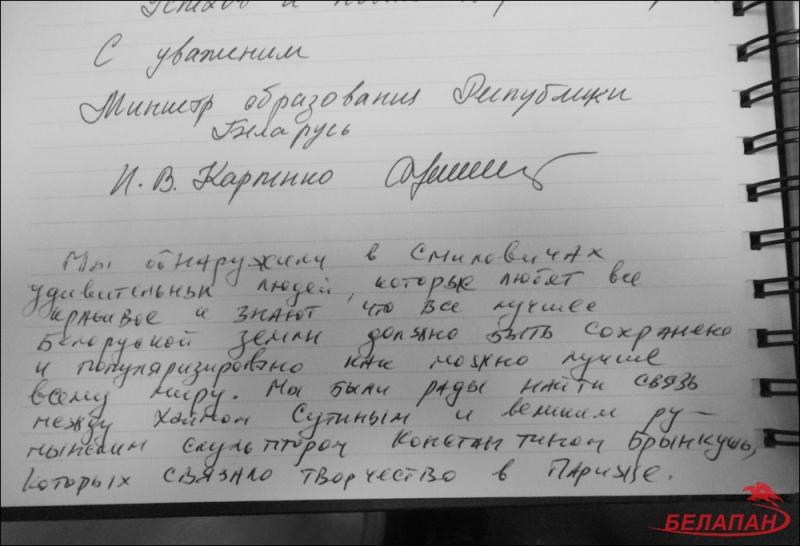 Успехов и
С уважением
Министр образования Республики
Беларусь
И. В. Карпенко
Мы обнаружили в Смиловичах
удивительных людей, которые любят все
красивое и знают что все лучшее
Белоруской земли должно быть сохранено
и популяризировано как можно лучше
всему миру. Мы были рады найти связь
между Хаимом Сутиным и великим ру-
мынским скульптором Константином Брынкушь,
которых связало творчество в Париже.
БЕЛАПАН